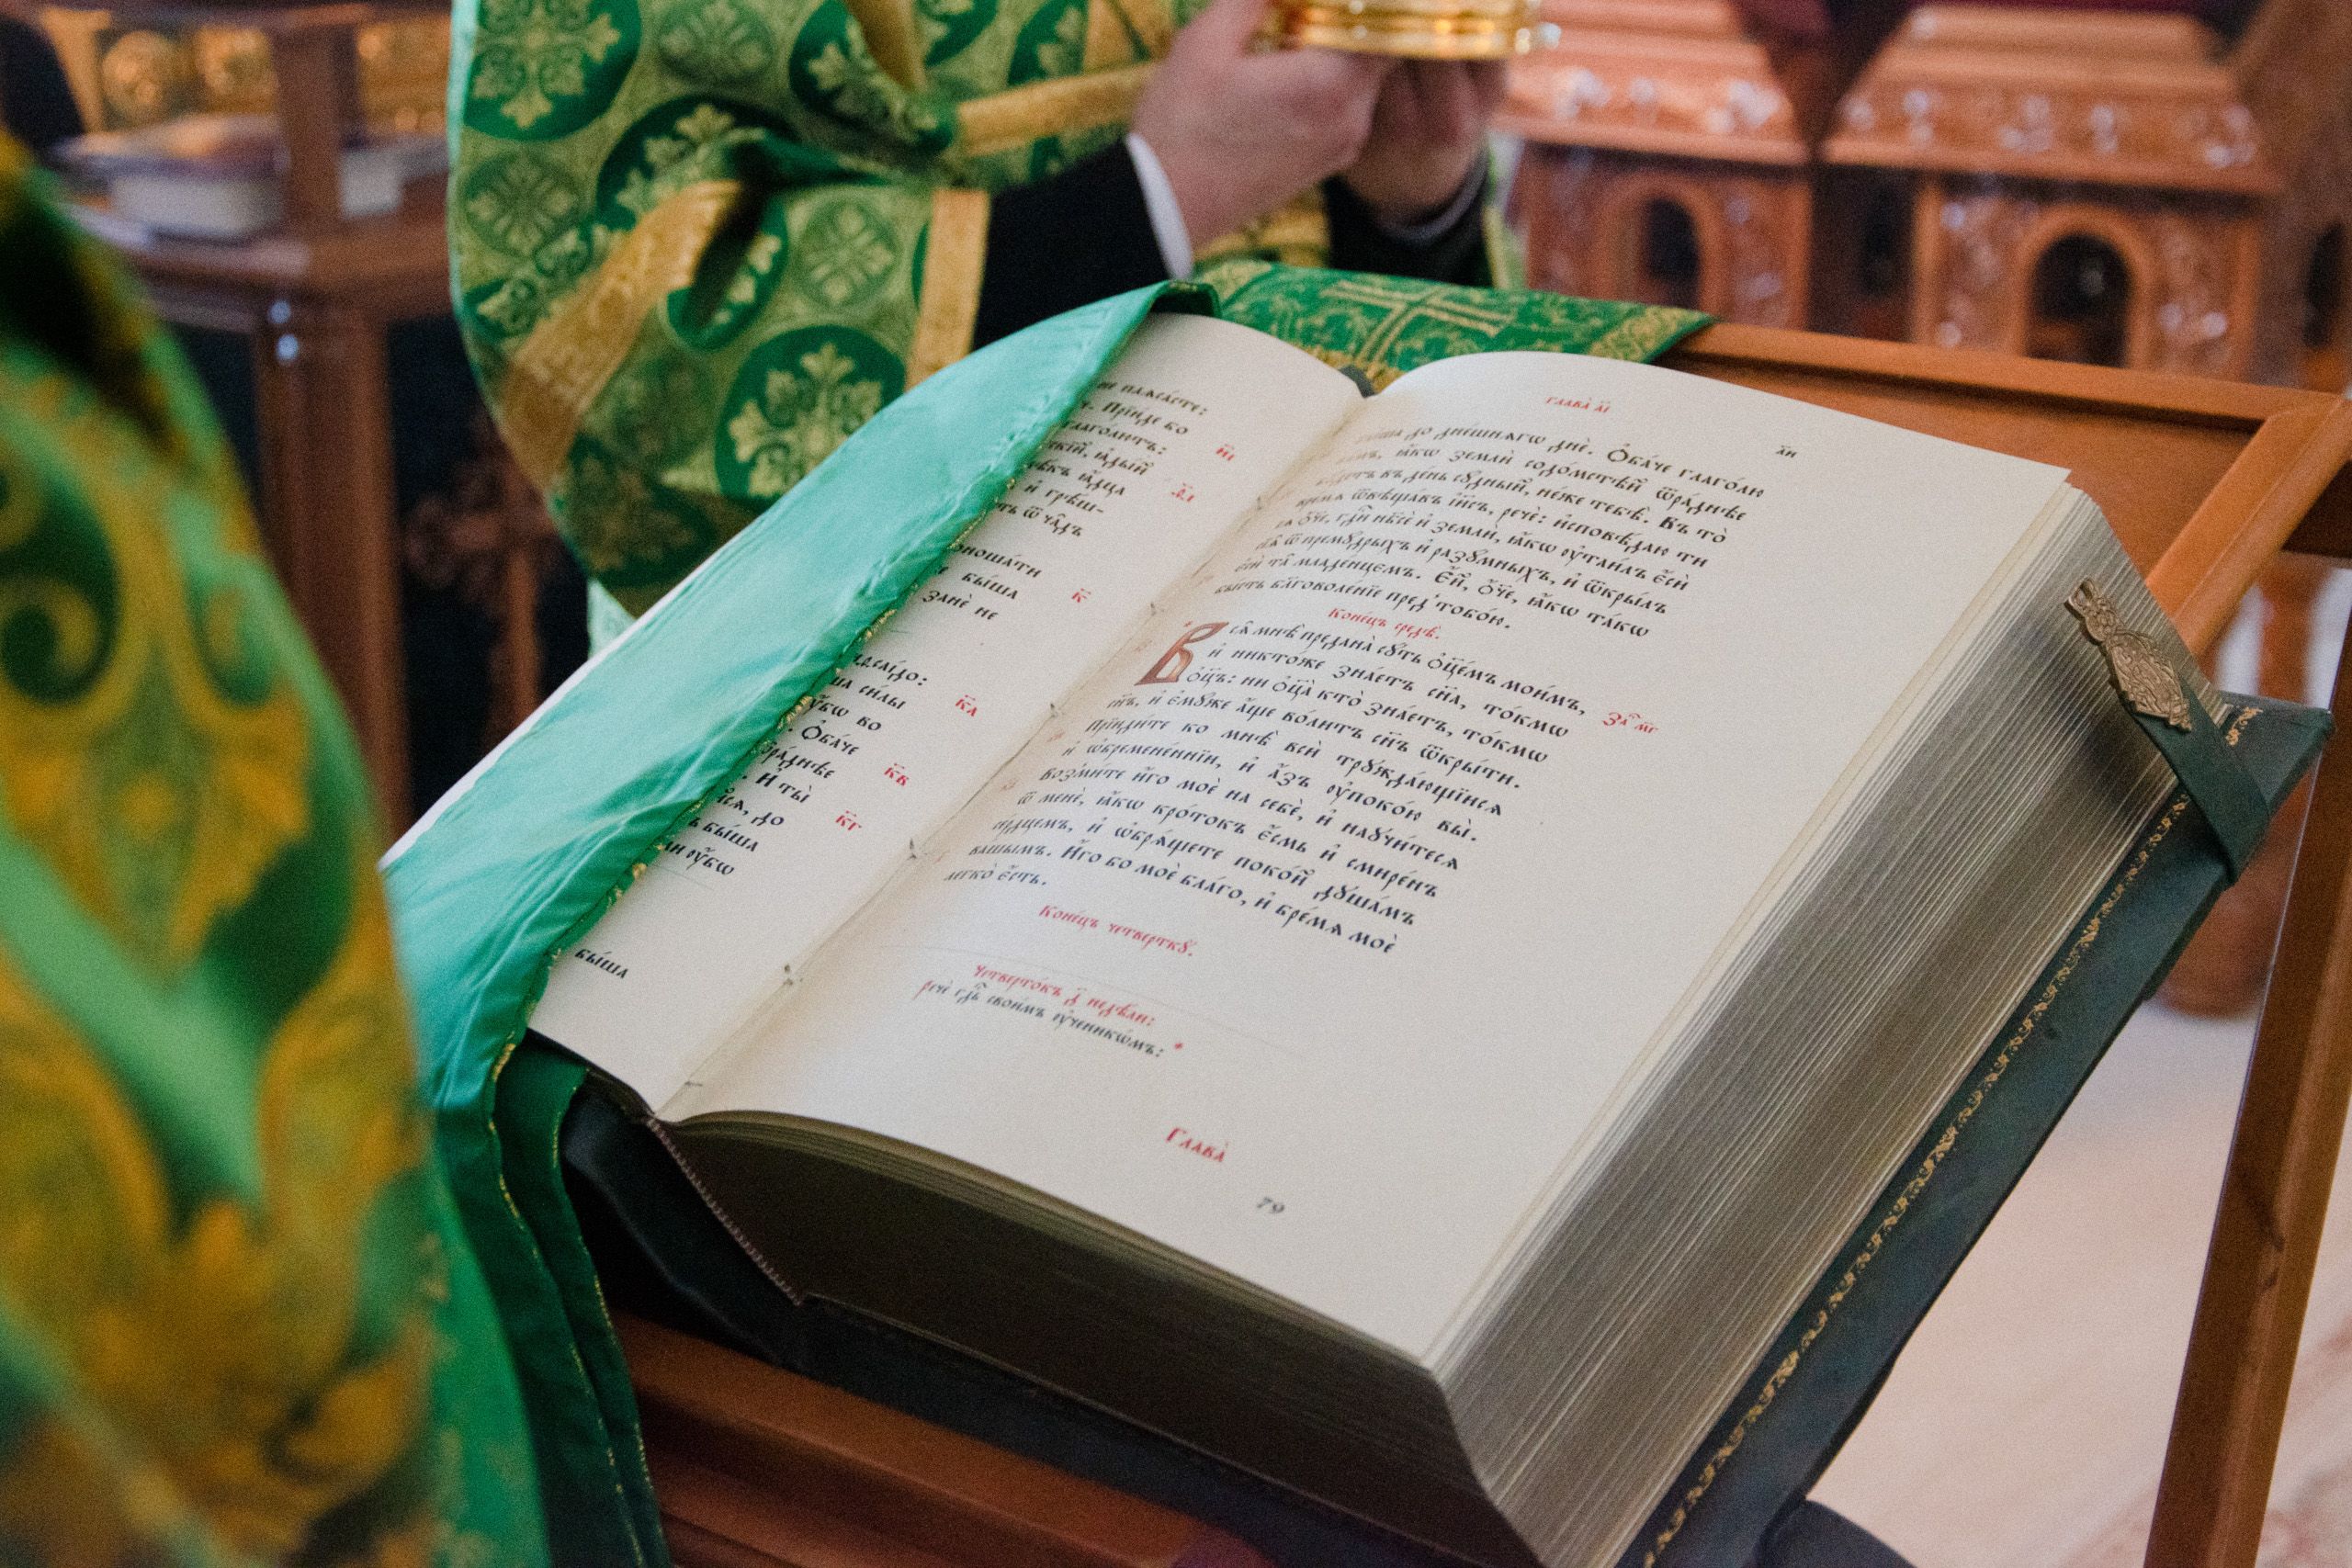 не плакасте:
Прїиде бо
глаго́лютъ:
и҆ грѣш-
ѿ ча̑дъ
поноша́ти
н҃і
ѳ҃і
бы́ша
занѐ не
к҃
си̑лы
к҃а
ѹ҆́бѡ во
Ѻ҆ба́че
к҃в
И҆ ты̀
до
к҃г
бы́ша
ѹ҆́бѡ
бы́ша
Глава̀ а҃і
о҃и
до дне́шнѧгѡ днѐ. Ѻ҆ба́че глаго́лю
ва́мъ, ꙗ҆́кѡ землѝ содо́мстѣй ѿра́днѣе
бꙋ́детъ въ де́нь сꙋ́дный, не́же тебѣ̀. Въ то̀
вре́мѧ ѿвѣща́въ і҆и҃съ, речѐ: и҆сповѣ́даю ти
сѧ ѻ҆́ч҃е, гдⷭ҇и нб҃сѐ и҆ землѝ, ꙗ҆́кѡ ѹ҆таи́лъ є҆сѝ
сїѧ̑ ѿ премꙋ́дрыхъ и҆ разꙋ́мныхъ, и҆ ѿкры́лъ
є҆сѝ та̑ младе́нцємъ. Є҆́й, ѻ҆́ч҃е, ꙗ҆́кѡ та́кѡ
бы́сть бл҃говоле́нїе пред̾ тобо́ю.
Коне́цъ средѣ̀.
Всѧ̑ мнѣ̀ предана̑ сꙋ́ть ѻ҆ц҃е́мъ мои́мъ,
и҆ никто́же зна́етъ сн҃а, то́кмѡ
ѻ҆ц҃ъ: ни ѻ҆ц҃а̀ кто̀ зна́етъ, то́кмѡ
За̑ м҃г
сн҃ъ, и҆ є҆мꙋ́же а҆́ще во́литъ сн҃ъ ѿкры́ти.
Прїиди́те ко мнѣ̀ всѝ трꙋжда́ющїисѧ
и҆ ѡ҆бремене́ннїи, и҆ а҆́зъ ѹ҆поко́ю вы̀.
Возми́те и҆́го моѐ на себѐ, и҆ наꙋчи́тесѧ
ѿ менє̀, ꙗ҆́кѡ кро́токъ є҆́смь и҆ смире́нъ
се́рдцемъ, и҆ ѡ҆брѧ́щете поко́й дꙋша́мъ
ва́шымъ. И҆́го бо моѐ бла́го, и҆ бре́мѧ моѐ
легко̀ є҆́сть.
Коне́цъ четверткꙋ̀.
Четверто́къ г҃ недѣ́ли:
речѐ гдⷭ҇ь свои́мъ ѹ҆ченикѡ́мъ:
Глава̀
79